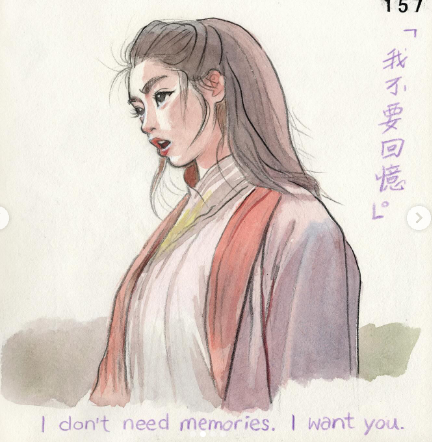 157
「我不要回憶。」
I don't need memories. I want you.